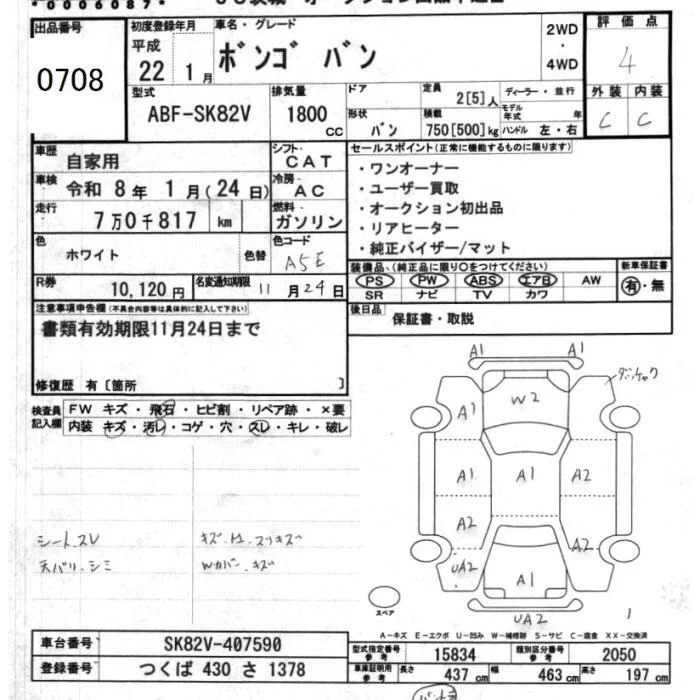 *0006087*
出品番号
0708
初度登録年月
平成
22年1月
車名・グレード
ボンゴ バン
2WD
・
4WD
評価点
4
型式
ABF-SK82V
排気量
1800
CC
ドア
形状
バン
定員
2[5]人
積載
750[500]kg
ディーラー・並行
モデル年式 年
ハンドル 左・右
外装 内装
C C
車歴 自家用
シフト CAT
車検 令和 8年 1月(24日)
冷房 AC
走行 7万0千817 km
燃料 ガソリン
色 ホワイト
色替
色コード A5E
R券 10,120円
名変通知期限 11月24日
セールスポイント(正常に機能するものに限ります)
・ワンオーナー
・ユーザー買取
・オークション初出品
・リアヒーター
・純正バイザー/マット
装備品、(純正品に限り○をつけてください)
PS PW ABS エアB AW
SR ナビ TV カワ
新車保証書
有・無
後日品 保証書・取説
注意事項申告欄(不具合内容等は具体的に記入して下さい)
書類有効期限11月24日まで
修復歴 有〔箇所 〕
検査員記入欄
FW キズ・飛石・ヒビ割・リペア跡・×要
内装 キズ・汚レ・コゲ・穴・スレ・キレ・破レ
シートスレ
天バリ、シミ
Wカバー、キズ
A1 A1
W2
A1
A1 A1 A2
A2
A2
UA2
A1
UA2
1
スペア
A-キズ E-エクボ U-凹み W-補修跡 S-サビ C-腐食 XX-交換済
車台番号 SK82V-407590
登録番号 つくば 430 さ 1378
型式指定番号 参考 15834
類別区分番号 参考 2050
車庫証明用 参考 長さ 437 cm 幅 463 cm 高さ 197 cm